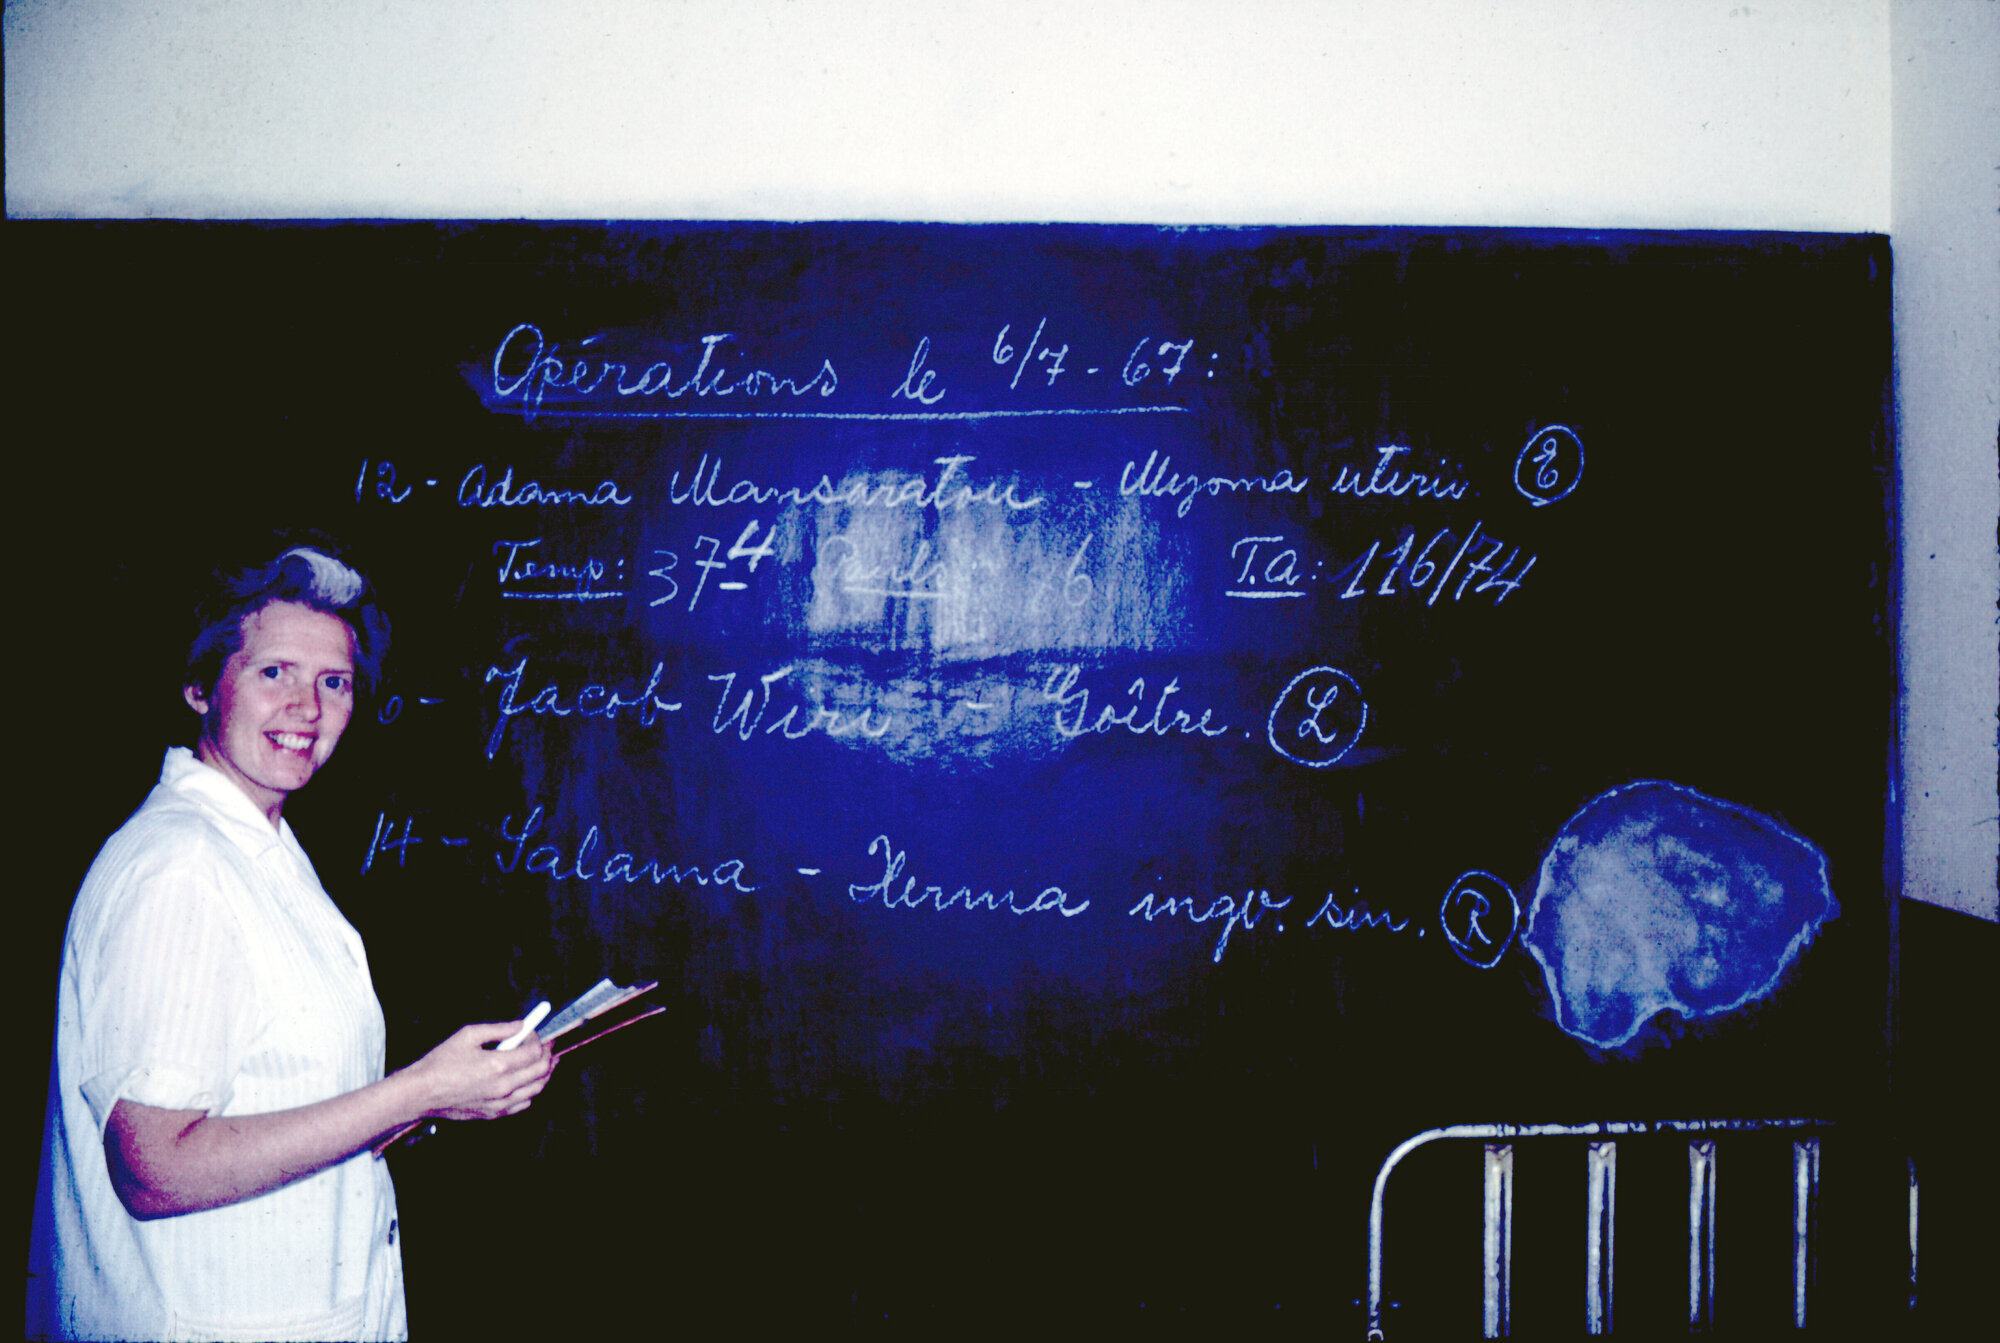 Opérations le 6/7 - 67:
12 - Adama Mansaratou - Myoma uterii. E
Temp: 37⁴ Puls: 6 T.A: 116/74
6 - Jacob Wiri - Goître. L
14 - Salama - Herma ingv. sin. R